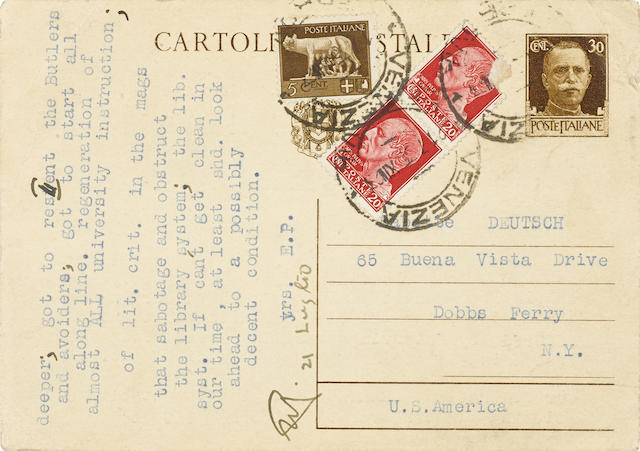 CARTOLI STALE
POSTE ITALIANE
5 CENT.
POSTE ITALIANE
20
POSTE ITALIANE
20
CENT. 30
POSTE ITALIANE
VENEZIA
VENEZIA
VENEZIA
deeper; got to resent the Butlers
and avoiders; got to start all
along line. regeneration of
almost ALL university instruction;
of lit. crit. in the mags
that sabotage and obstruct
the library system; the lib.
syst. If cant get clean in
our time, at least shd. look
ahead to a possibly
decent condition.
yrs. E.P.
21 Luglio
DEUTSCH
65 Buena Vista Drive
Dobbs Ferry
N.Y.
U.S.America